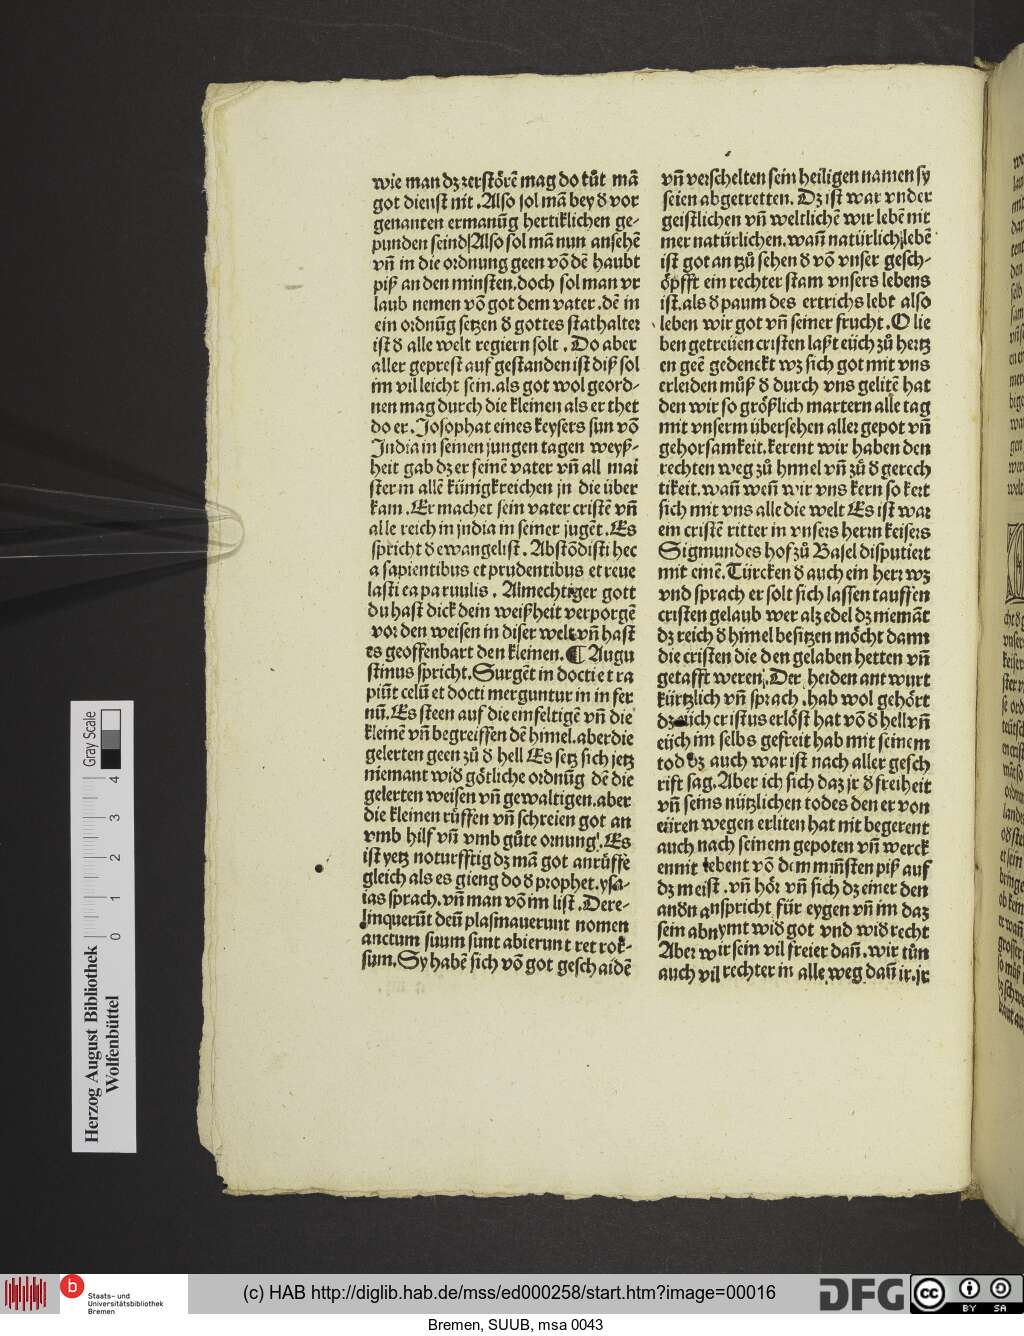 wie man dz zerstörē mag do tůt mā
got dienst nit. Also sol mā bey d vor
genanten ermanūg hertiklichen ge-
punden seind Also sol mā nun ansehē
vn̄ in die ordnung geen vō dē haubt
piß an den minsten. doch sol man vr
laub nemen vō got dem vater. dē in
ein ordnūg setzen d gottes stathalter
ist d alle welt regiern solt. Do aber
aller geprest auf gestanden ist diß sol
im vil leicht sein. als got wol geord-
nen mag durch die kleinen als er thet
do er. Josophat eines keysers sun vō
India in seinen jungen tagen weyß-
heit gab dz er seinē vater vn̄ all mai
ster in allē künigkreichen jn die über
kam. Er machet sein vater cristē vn̄
alle reich in india in seiner jugēt. Es
spricht d ewangelist. Abstōdisti hec
a sapientibus et prudentibus et reue
lasti ea paruulis. Almechtiger gott
du hast dick dein weißheit verporgē
vor den weisen in diser welt vn̄ hast
es geoffenbart den kleinen. ¶ Augu
stinus spricht. Surgēt in docti et ra
piūt celū et docti merguntur in in fer
nū. Es steen auf die einfeltigē vn̄ die
kleinē vn̄ begreiffen dē himel. aber die
gelerten geen zů d hell Es setz sich jetz
niemant wid götliche ordnūg dē die
gelerten weisen vn̄ gewaltigen. aber
die kleinen rüffen vn̄ schreien got an
vmb hilf vn̄ vmb gůte ornung. Es
ist yetz noturfftig dz mā got anrüffe
gleich als es gieng do d prophet. ysa-
ias sprach. vn̄ man vō im list. Dere-
linquerūt deū plasmauerunt nomen
anctum suum sunt abierunt retrok-
sum. Sy habē sich vō got geschaidē
vn̄ verschelten sein heiligen namen sy
seien abgetretten. Dz ist war vnder
geistlichen vn̄ weltlichē wir lebē nit
mer natürlichen. wan̄ natürlich lebē
ist got an tzů sehen d vō vnser gesch-
öpfft ein rechter stam vnsers lebens
ist. als d paum des ertrichs lebt also
leben wir got vn̄ seiner frucht. O lie
ben getreüen cristen laßt eüch zů hertz
en geē gedenckt wz sich got mit vns
erleiden můß d durch vns gelitē hat
den wir so größlich martern alle tag
mit vnserm übersehen aller gepot vn̄
gehorsamkeit. kerent wir haben den
rechten weg zů himel vn̄ zů d gerech
tikeit. wan̄ wen̄ wir vns kern so kert
sich mit vns alle die welt Es ist war
ein cristē ritter in vnsers herrn keisers
Sigmundes hof zů Basel disputiert
mit einē. Türcken d auch ein herr wz
vnd sprach er solt sich lassen tauffen
cristen gelaub wer alz edel dz niemāt
dz reich d himel besitzen möcht dann
die cristen die den gelaben hetten vn̄
getafft weren. Der heiden antwurt
kürtzlich vn̄ sprach. hab wol gehört
dz eüch cristus erlöst hat vō d hell vn̄
eüch im selbs gefreit hab mit seinem
tod dz auch war ist nach aller gesch
rift sag. Aber ich sich daz jr d freiheit
vn̄ seins nützlichen todes den er von
eüren wegen erliten hat nit begerent
auch nach seinem gepoten vn̄ werck
en nit lebent vō dem minsten piß auf
dz meist. vn̄ hör vn̄ sich dz einer den
andn anspricht für eygen vn̄ im daz
sein abnymt wid got vnd wid recht
Aber wir sein vil freier dan̄. wir tůn
auch vil rechter in alle weg dan̄ ir. jr
Herzog August Bibliothek
Wolfenbüttel
0 1 2 3 4
Gray Scale
b
Staats- und
Universitätsbibliothek
Bremen
(c) HAB http://diglib.hab.de/mss/ed000258/start.htm?image=00016
DFG
cc BY SA
Bremen, SUUB, msa 0043